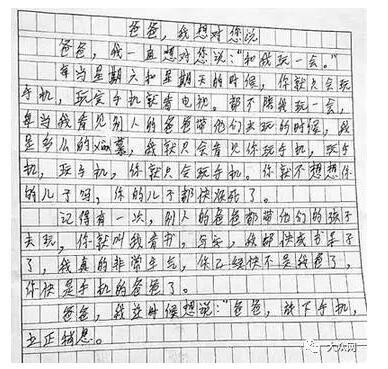 爸爸，我想对您说
爸爸，我一直想对您说："和我玩一会。"
每当星期六和星期天的时候，你就只会玩
手机，玩完手机就看电视。都不陪我玩一会，
每当我看见别人的爸爸带他们去玩的时候，我
是多么的xiàn慕，我就只会看见你玩手机，玩手
机，玩手机，你就只会玩手机。你就不想想你
的儿子吗，你的儿子都快 死了。
记得有一次，别人的爸爸都带他们的孩子
去玩，你就叫我看书，写字，我都快成书呆子
了，我真的非常生气，你已经快不是我爸了，
你快是手机的爸爸了。
爸爸，我这时候想说："爸爸，放下手机，
立正稍息。
大众网